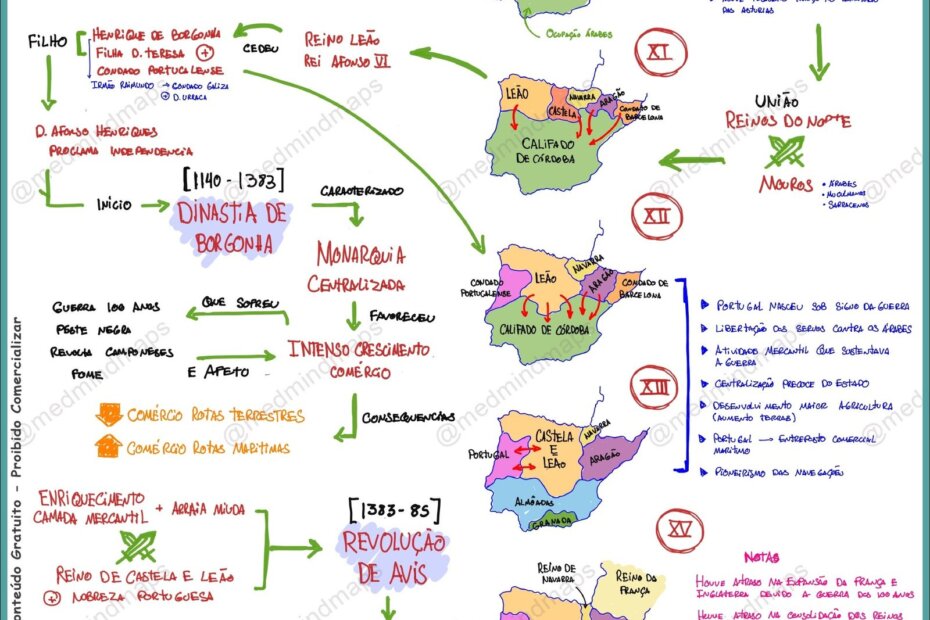 DAS ASTÚRIAS
OCUPAÇÃO ÁRABES
FILHO
HENRIQUE DE BORGONHA
FILHA D. TERESA +
CONDADO PORTUCALENSE
IRMÃO RAIMUNDO → CONDADO GALIZA
+ D. URRACA
CEDEU
REINO LEÃO
REI AFONSO VI
XI
LEÃO
CASTELA
NAVARRA
ARAGÃO
CONDADO DE
BARCELONA
CALIFADO
DE CÓRDOBA
UNIÃO
REINOS DO NORTE
MOUROS
• ÁRABES
• MUÇULMANOS
• SARRACENOS
D. AFONSO HENRIQUES
PROCLAMA INDEPENDÊNCIA
INÍCIO
[1140 - 1383]
DINASTIA DE
BORGONHA
CARACTERIZADO
MONARQUIA
CENTRALIZADA
FAVORECEU
INTENSO CRESCIMENTO
COMÉRCIO
QUE SOFREU
GUERRA 100 ANOS
PESTE NEGRA
REVOLTA CAMPONESES
FOME
E AFETO
COMÉRCIO ROTAS TERRESTRES
COMÉRCIO ROTAS MARÍTIMAS
CONSEQUENCIAS
XII
CONDADO
PORTUCALENSE
LEÃO
NAVARRA
ARAGÃO
CONDADO DE
BARCELONA
CALIFADO DE CÓRDOBA
PORTUGAL NASCEU SOB SIGNO DA GUERRA
LIBERTAÇÃO DOS SERVOS CONTRA OS ÁRABES
ATIVIDADE MERCANTIL QUE SUSTENTAVA
A GUERRA
CENTRALIZAÇÃO PRECOCE DO ESTADO
DESENVOLVIMENTO MAIOR AGRICULTURA
(AUMENTO TERRAS)
PORTUGAL → ENTREPOSTO COMERCIAL
MARÍTIMO
PIONEIRISMO DAS NAVEGAÇÕES
XIII
PORTUGAL
CASTELA
E
LEÃO
NAVARRA
ARAGÃO
ALMÔADAS
GRANADA
ENRIQUECIMENTO
CAMADA MERCANTIL + ARRAIA MIÚDA
REINO DE CASTELA E LEÃO
+ NOBREZA PORTUGUESA
[1383-85]
REVOLUÇÃO
DE AVIS
XV
REINO DE
NAVARRA
REINO DA
FRANÇA
NOTAS
HOUVE ATRASO NA EXPANSÃO DA FRANÇA E
INGLATERRA DEVIDO A GUERRA DOS 100 ANOS
HOUVE ATRASO NA CONSOLIDAÇÃO DOS REINOS
onteúdo Gratuito - Proibido Comercializar
@medmindmaps
@medmindmaps
@medmindmaps
@medmindmaps
@medmindmaps
@medmindmaps
@medmindmaps
@medmindmaps